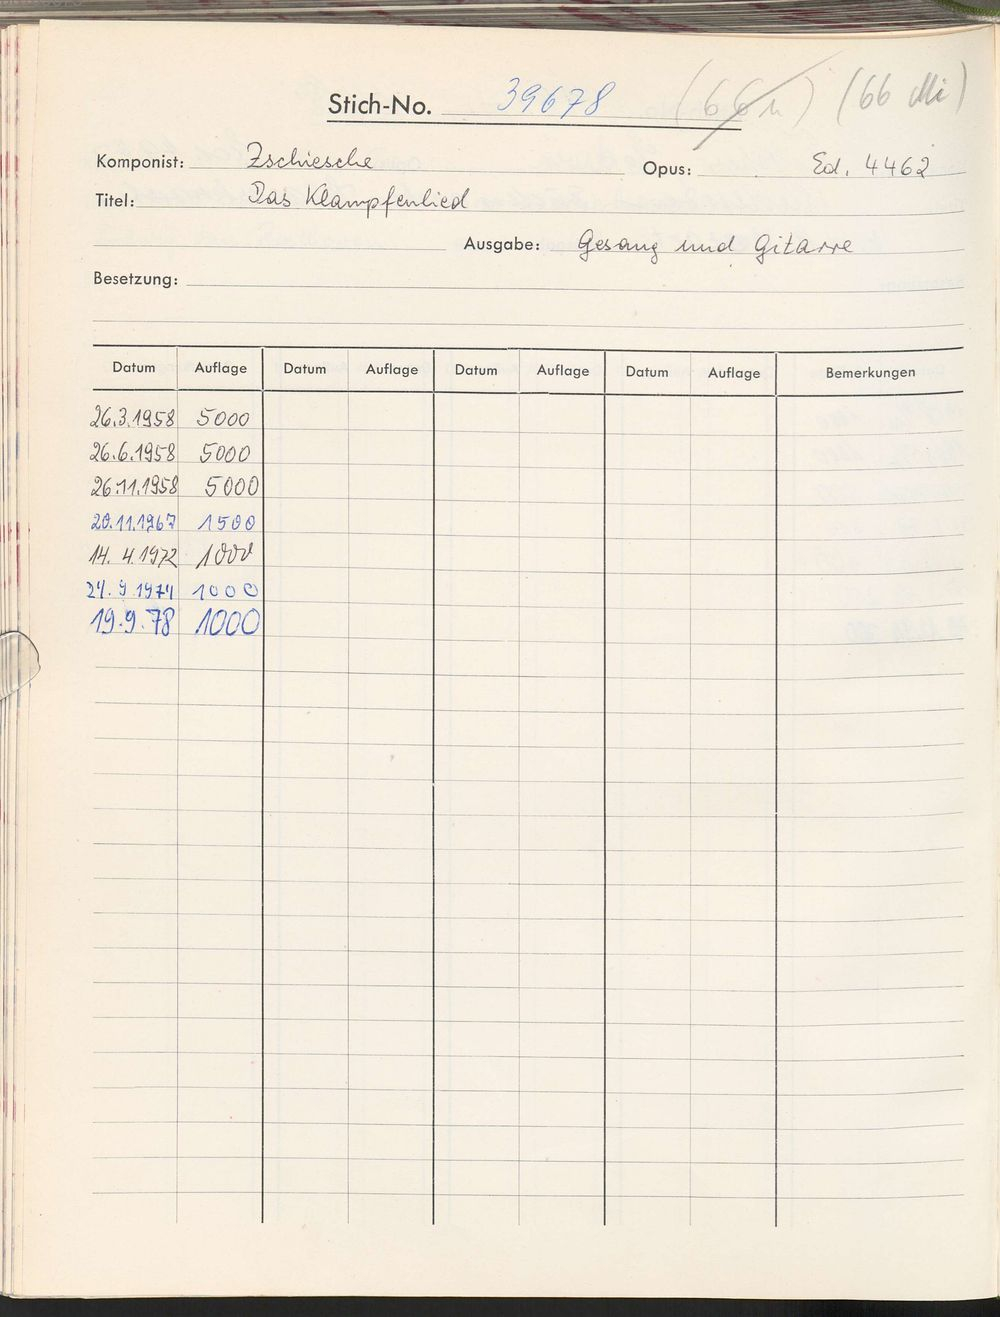 Stich-No. 39678 (66 Mi)
Komponist: Zschiesche Opus: Ed. 4462
Titel: Das Klampfenlied
Ausgabe: Gesang und Gitarre
Besetzung:
Datum Auflage Datum Auflage Datum Auflage Datum Auflage Bemerkungen
26.3.1958 5000
26.6.1958 5000
26.11.1958 5000
20.11.1967 1500
14. 4. 1972 1000
24. 9 1974 1000
19.9.78 1000